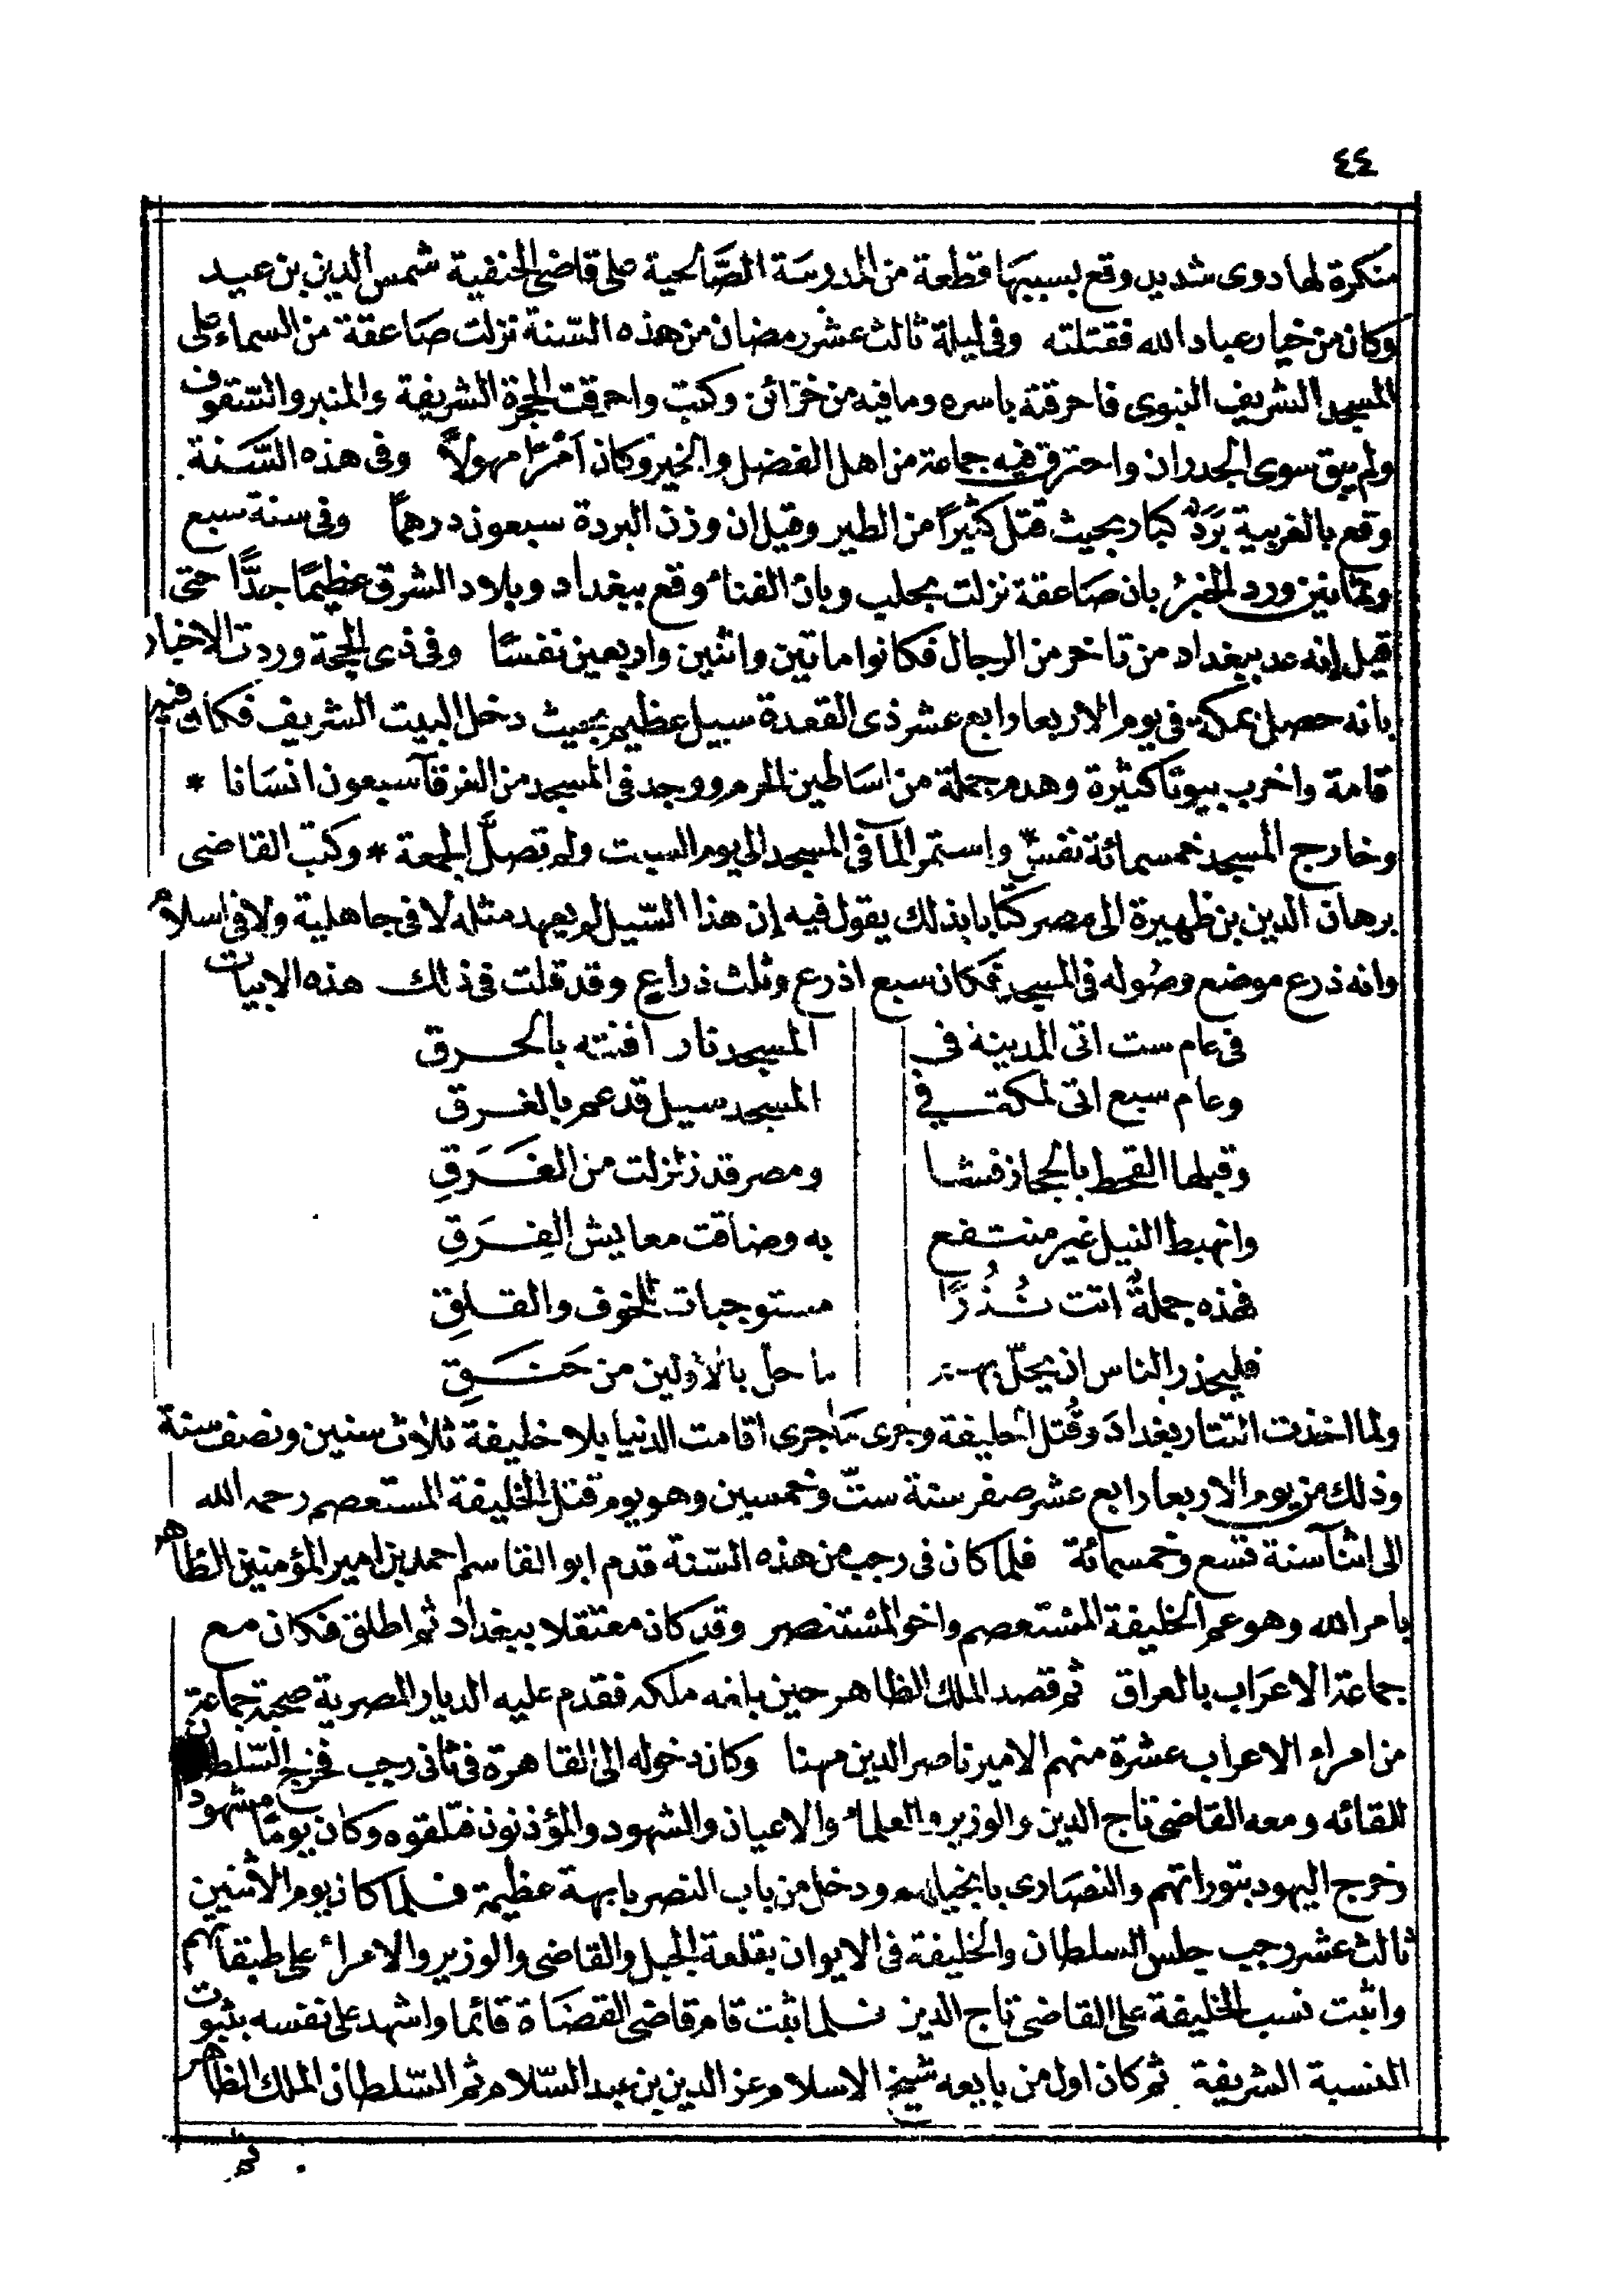 ٤٤
منكرة لها دوى شديد وقع بسببها قطعة من المدرسة الصَّالحية على قاضى الحنفية شمس الدين بن عيد
وكان من خيار عباد الله فقتلته وفى ليلة ثالث عشر رمضان من هذه السّنة نزلت صَاعقة من السماء على
المسجد الشريف النبوى فاحرقته باسره وما فيه من خزائن وكتب واحرقت الحجرة الشريفة والمنبر والسّقوف
ولم يبق سوى الجدران واحترق فيه جماعة من اهل الفضل والخير وكان اَمْرًا مهولاً وفى هذه السَّنة
وقع بالغربية بَرَدٌ كبار بحيث قتل كثيرًا من الطير وقيل ان وزن البردة سبعون درهماً وفى سنة سبع
وثمانين ورد الخبرُ بان صَاعقة نزلت بحلب وبان الفناء وقع ببغداد وبلاد الشرق عظيمًا جدًّا حتى
قيل انه عد ببغداد من تاخر من الرجال فكانوا مايتين واثنين واربعين نفسًا وفى ذى الحجة وردت الاخبار
بانه حصل بمكة فى يوم الاربعا رابع عشر ذى القعدة سيل عظيم بحيث دخل البيت الشريف فكان فيه
قامة واخرب بيوتا كثيرة وهدم جملة من اسَاطين الحرم ووجد فى المسجد من الغرقآ سبعون انسَانا *
وخارج المسجد خمسمائة نفسٍ واستمر المآ فى المسجد الى يوم السبت ولم تصلَّ الجمعة * وكتب القاضى
برهان الدين بن ظهيرة الى مصر كتابا بذلك يقول فيه إن هذا السّيل لم يعهد مثله لا فى جاهلية ولا فى اسلام
وانه ذرع موضع وصُوله فى المسجد فكان سبع اذرع وثلث ذراع وقد قلت فى ذلك هذه الابيات
فى عام ست اتى المدينة فى المسجد نار افنته بالحرق
وعام سبع اتى لمكة فى المسجد سيل قد عم بالغرق
وقبلها القحط بالحجاز فشا ومصر قد زلزلت من الغَرَقِ
وانهبط النيل غير منتفع به وضاقت معايش الفِرَقِ
فهذه جملةٌ اتت نُذُرًا مستوجبات للخوف والقلقِ
فليحذر الناس ان يحلّ بهم ما حلّ بالأولين من حَنَقِ
ولما اخذت التتار بغدادَ وقُتل الخليفة وجرى مَا جرى اقامت الدنيا بلا خليفة ثلاث سنين ونصف سنة
وذلك من يوم الاربعا رابع عشر صفر سنة ستّ وخمسين وهو يوم قتل الخليفة المستعصم رحمه الله
الى اثنآ سنة تسع وخمسمائة فلما كان فى رجب من هذه السّنة قدم ابو القاسم احمد بن امير المؤمنين الظاهر
بامر الله وهو عم الخليفة المستعصم واخو المستنصر وقد كان معتقلا ببغداد ثم اطلق فكان مع
جماعة الاعرَاب بالعراق ثم قصد الملك الظاهر حين بلغه ملكه فقدم عليه الديار المصرية صحبة جماعة
من امراء الاعراب عشرة منهم الامير ناصر الدين مهنا وكان دخوله الى القاهرة فى ثانى رجب فخرج السّلطان
للقائه ومعه القاضى تاج الدين والوزير والعلماء والاعيان والشهود والمؤذنون فتلقوه وكان يومًا مشهودا
وخرج اليهود بتوراتهم والنصَارى بانجيلهم ودخل من باب النصر بابهة عظيمة فلما كان يوم الاثنين
ثالث عشر رجب جلس السلطان والخليفة فى الايوان بقلعة الجبل والقاضى والوزير والامراء على طبقاتهم
واثبت نسب الخليفة على القاضى تاج الدين فلما ثبت قام قاضى القضَاة قائما واشهد على نفسه بثبوت
النسبة الشريفة ثم كان اول من بايعه شيخ الاسلام عز الدين بن عبد السّلام ثم السّلطان الملك الظاهر
ثم